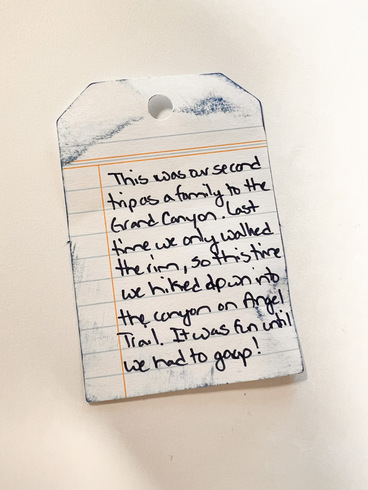 This was our second
trip as a family to the
Grand Canyon. Last
time we only walked
the rim, so this time
we hiked down into
the canyon on Angel
Trail. It was fun until
we had to go up!